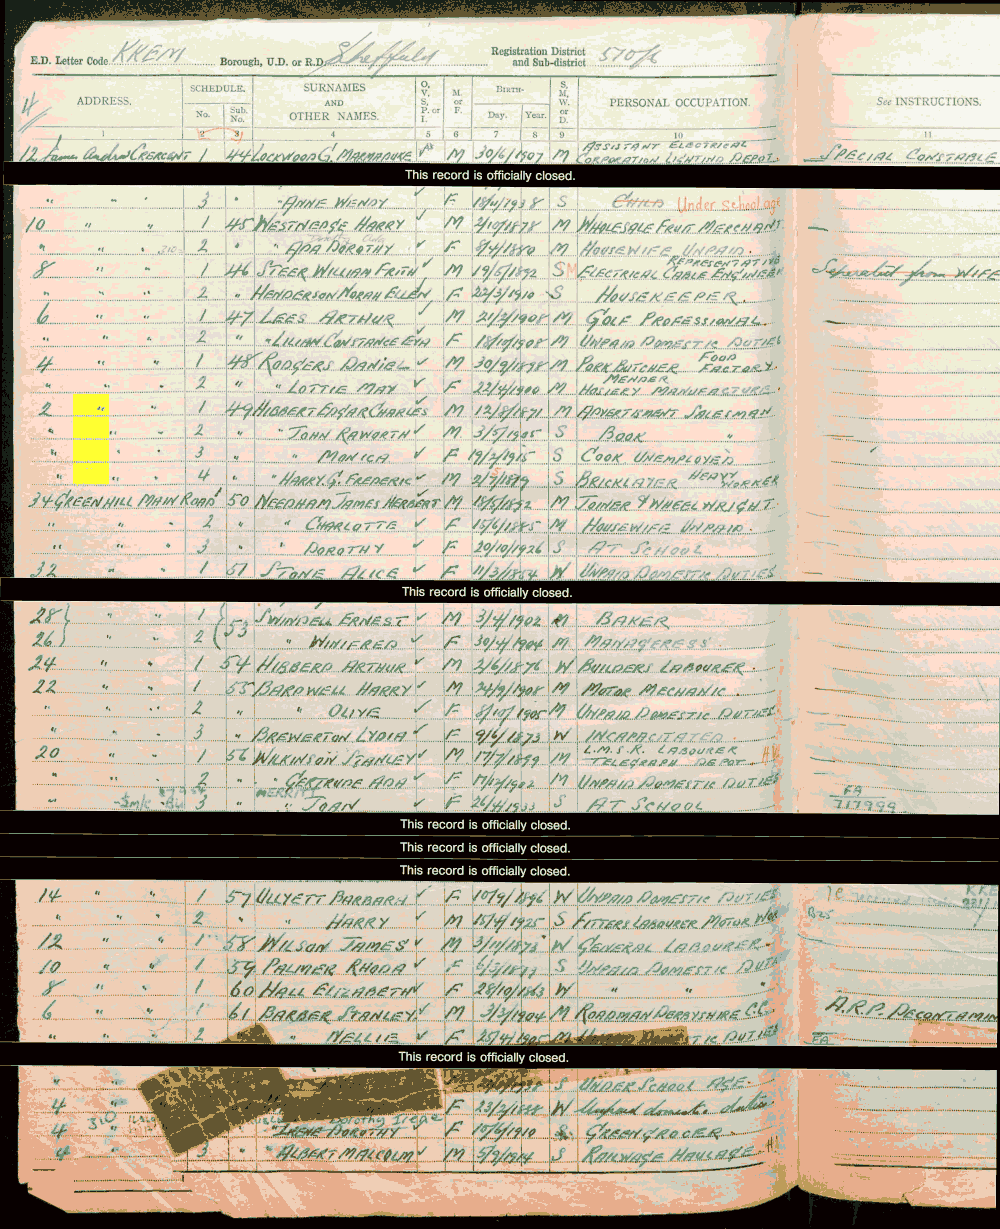 E.D. Letter Code KKEM Borough, U.D. or R.D. Sheffield Registration District and Sub-district 510/
4
ADDRESS. SCHEDULE. No. Sub. No. SURNAMES AND OTHER NAMES. O, V, S, P, or I. M. or F. BIRTH- Day. Year. S, M, W, or D. PERSONAL OCCUPATION. See INSTRUCTIONS.
1 2 3 4 5 6 7 8 9 10 11
ASSISTANT ELECTRICAL
12 CRERCENT 1 44 LOCKWOOD G. MARMADUKE M 30/6/1907 M CORPORATION LIGHTING DEPOT. SPECIAL CONSTABLE
This record is officially closed.
" " " 3 " ANNE WENDY F 18/4/1938 S CHILD Under school age
10 " " 1 45 WESTNEDGE HARRY M 2/10/1878 M WHOLESALE FRUIT MERCHANT
" " " 2 " ADA DOROTHY F 8/4/1880 M HOUSEWIFE UNPAID.
REPRESENTATIVE
8 " " 1 46 STEER WILLIAM FRITH M 19/5/1892 SM ELECTRICAL CABLE ENGINEER Separated from WIFE
" " " 2 " HENDERSON NORAH ELLEN F 22/3/1910 S HOUSEKEEPER.
6 " " 1 47 LEES ARTHUR M 21/2/1908 M GOLF PROFESSIONAL.
" " " 2 " " LILIAN CONSTANCE EVA F 18/10/1908 M UNPAID DOMESTIC DUTIES
4 " " 1 48 RODGERS DANIEL M 30/9/1898 M PORK BUTCHER FOOD FACTORY.
MENDER
" " " 2 " " LOTTIE MAY F 22/4/1900 M HOSIERY MANUFACTURE.
2 " " 1 49 HIBBERT EDGAR CHARLES M 12/8/1871 M ADVERTISMENT SALESMAN
" " " 2 " " JOHN RAWORTH M 3/5/1905 S BOOK "
" " " 3 " " MONICA F 19/2/1915 S COOK UNEMPLOYED
" " " 4 " " HARRY. G. FREDERIC M S BRICKLAYER HEAVY WORKER
34 GREENHILL MAIN ROAD 1 50 NEEDHAM JAMES HERBERT M 18/5/1892 M JOINER & WHEELWRIGHT.
" " " 2 " " CHARLOTTE F 15/6/1885 M HOUSEWIFE UNPAID.
" " " 3 " " DOROTHY F 20/10/1926 S AT SCHOOL
32 1 51 STONE ALICE F 11/3/1854 W UNPAID DOMESTIC DUTIES
This record is officially closed.
28 } " " 1 { 53 SWINDELL ERNEST M 3/4/1902 M BAKER
26 } " " 2 " WINIFRED F 30/4/1904 M MANAGERESS
24 " " 1 54 HIBBERD ARTHUR M 2/6/1876 W BUILDERS LABOURER.
22 " " 1 55 BARDWELL HARRY M 24/9/1908 M MOTOR MECHANIC.
" " " 2 " " OLIVE F 8/10/1905 M UNPAID DOMESTIC DUTIES
" " " 3 " BREWERTON LYDIA F 9/6/1873 W INCAPACITATED.
20 " " 1 56 WILKINSON STANLEY M 17/7/1899 M L.M.S.R. LABOURER
TELEGRAPH DEPOT
" " " 2 " " GERTRUDE ADA F 17/12/1902 M UNPAID DOMESTIC DUTIES
" 3 " " JOAN F 26/4/1933 S AT SCHOOL FA 717999
This record is officially closed.
This record is officially closed.
This record is officially closed.
14 " " 1 57 ULLYETT BARBARA F 10/9/1896 W UNPAID DOMESTIC DUTIES
" " " 2 " " HARRY M 15/4/1925 S FITTERS LABOURER MOTOR
12 " " 1 58 WILSON JAMES M 3/11/1873 W GENERAL LABOURER.
10 " " 1 59 PALMER RHODA F S UNPAID DOMESTIC
8 " " 1 60 HALL ELIZABETH F 28/10/1863 W " " "
6 " " 1 61 BARBER STANLEY M 3/3/1904 M ROADMAN DERBYSHIRE C.C. A.R.P. DECONTAMIN
" " " 2 " NELLIE F 25/4/1905 M DUTIES FA
This record is officially closed.
" " S UNDER SCHOOL AGE.
4 " F 23/2/1888 W Unpaid domestic duties
Dorothy Irene
4 " IRENE DOROTHY F 10/6/1910 S GREENGROCER
4 3 " " ALBERT MALCOLM M 5/9/1914 S RAILWAGE HAULAGE